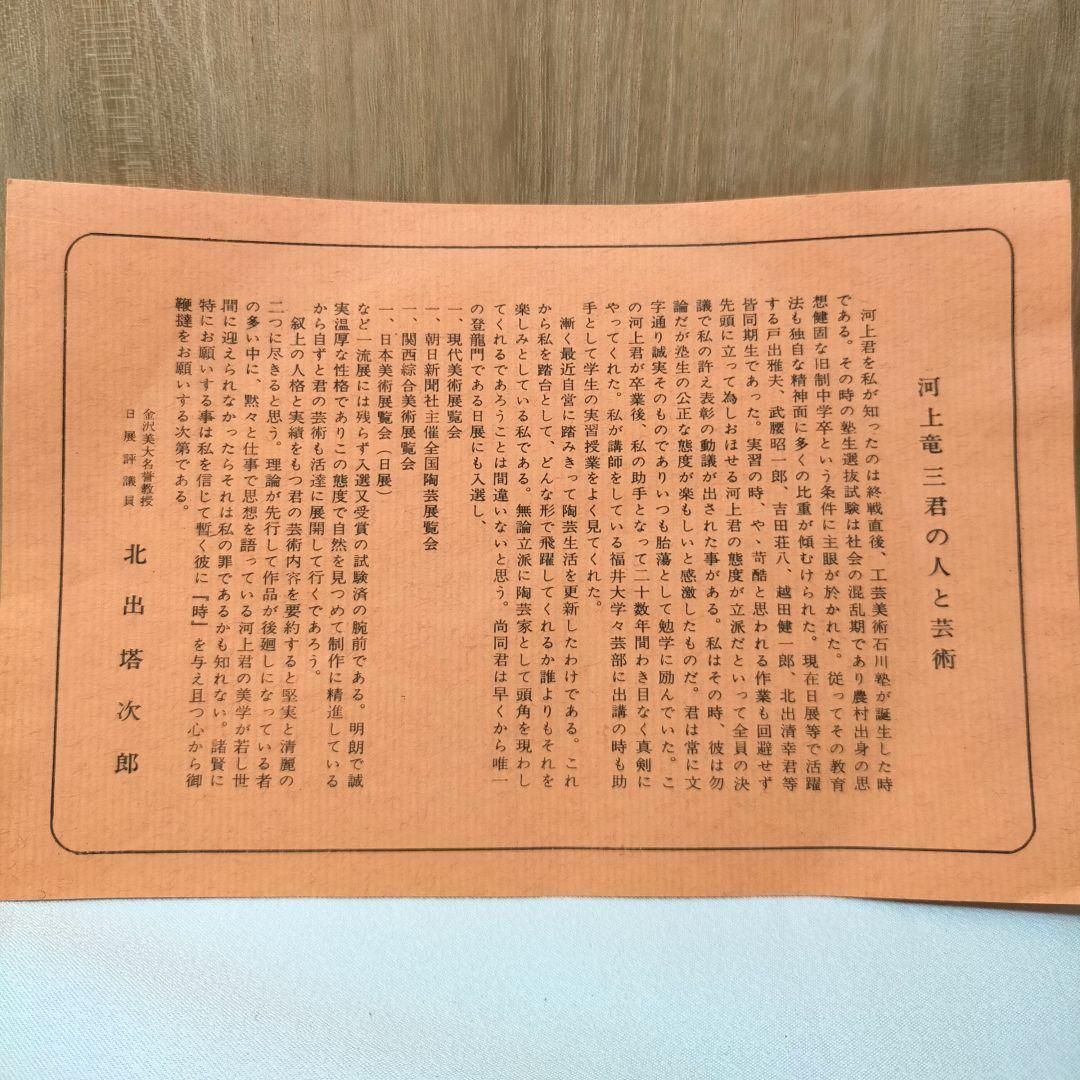 河上竜三君の人と芸術
河上君を私が知ったのは終戦直後、工芸美術石川塾が誕生した時
である。その時の塾生選抜試験は社会の混乱期であり農村出身の思
想健固な旧制中学卒という条件に主眼が於かれた。従ってその教育
法も独自な精神面に多くの比重が傾むけられた。現在日展等で活躍
する戸出雅夫、武腰昭一郎、吉田荘八、越田健一郎、北出清幸君等
皆同期生であった。実習の時、やゝ苛酷と思われる作業も回避せず
先頭に立って為しおほせる河上君の態度が立派だといって全員の決
議で私の許え表彰の動議が出された事がある。私はその時、彼は勿
論だが塾生の公正な態度が楽もしいと感激したものだ。君は常に文
字通り誠実そのものでありいつも胎蕩として勉学に励んでいた。こ
の河上君が卒業後、私の助手となって二十数年間わき目なく真剣に
やってくれた。私が講師をしている福井大学々芸部に出講の時も助
手として学生の実習授業をよく見てくれた。
漸く最近自営に踏みきって陶芸生活を更新したわけである。これ
から私を踏台として、どんな形で飛躍してくれるか誰よりもそれを
楽しみとしている私である。無論立派に陶芸家として頭角を現わし
てくれるであろうことは間違いないと思う。尚同君は早くから唯一
の登龍門である日展にも入選し、
一、現代美術展覧会
一、朝日新聞社主催全国陶芸展覧会
一、関西綜合美術展覧会
一、日本美術展覧会（日展）
など一流展には残らず入選又受賞の試験済の腕前である。明朗で誠
実温厚な性格でありこの態度で自然を見つめて制作に精進している
から自ずと君の芸術も活達に展開して行くであろう。
叙上の人格と実績をもつ君の芸術内容を要約すると堅実と清麗の
二つに尽きると思う。理論が先行して作品が後廻しになっている者
の多い中に、黙々と仕事で思想を語っている河上君の美学が若し世
間に迎えられなかったらそれは私の罪であるかも知れない。諸賢に
特にお願いする事は私を信じて暫く彼に『時』を与え且つ心から御
鞭撻をお願いする次第である。
金沢美大名誉教授
日展評議員
北出塔次郎